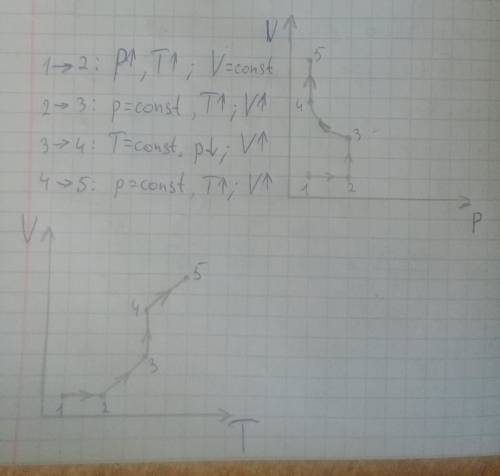 1→2: p↑, T↑; V=const
2→3: p=const, T↑; V↑
3→4: T=const, p↓; V↑
4→5: p=const, T↑; V↑
V
5
4
3
1
2
p
V
5
4
3
1
2
T